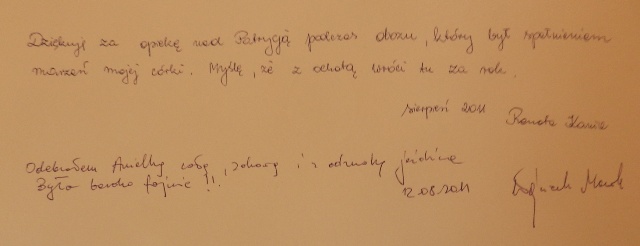 Dziękuję za opiekę nad Patrycją podczas obozu, który był spełnieniem
marzeń mojej córki. Myślę, że z ochotą wróci tu za rok.
sierpień 2011 Renata
Odebrałem Anielkę całą, zdrową i z odznaką
Było bardzo fajnie !!.
12.08.2011 Marek